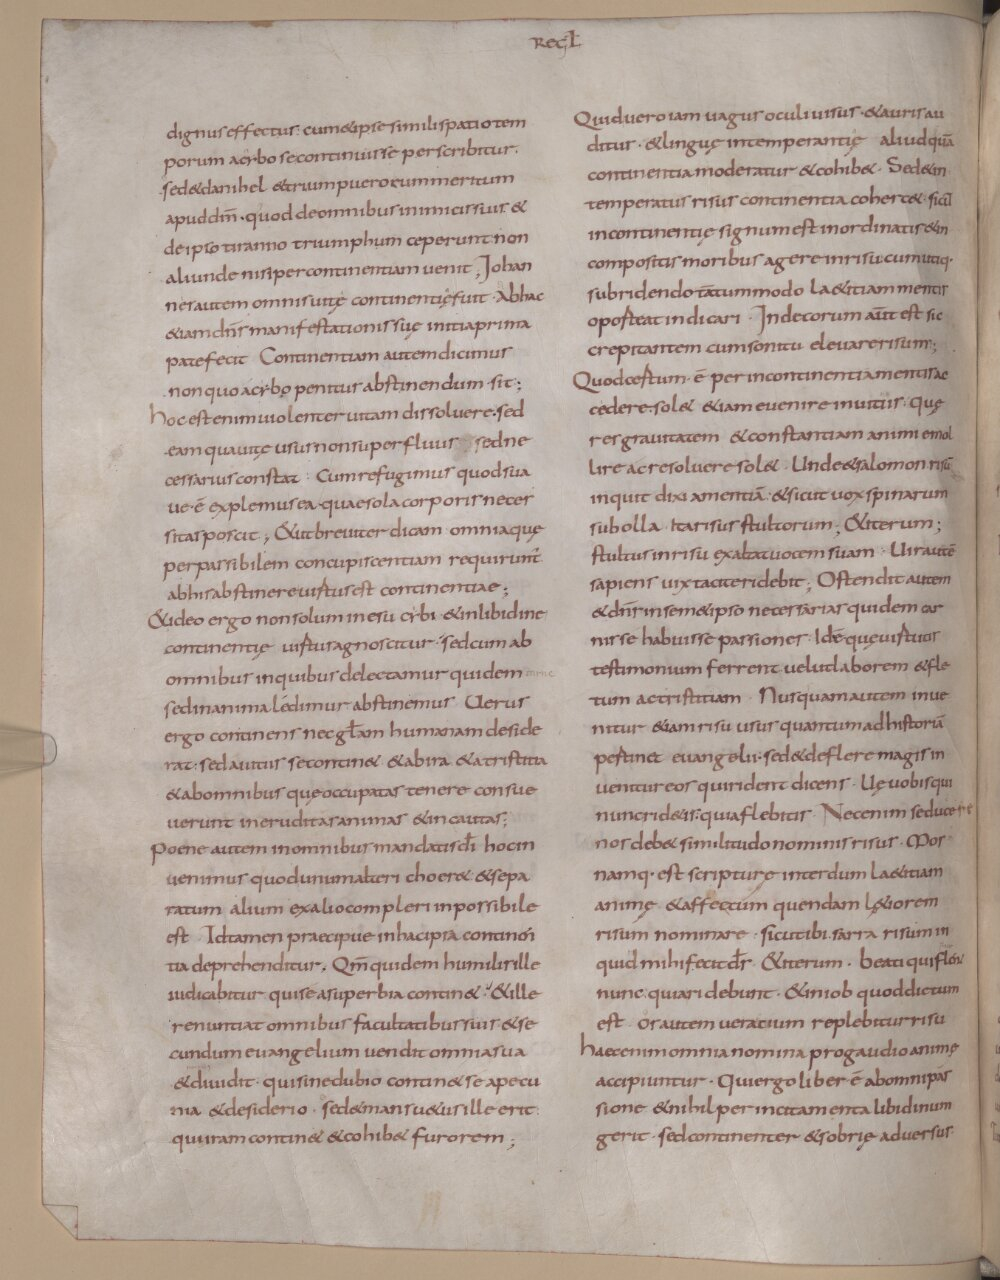 Regł
dignus effectus. cum & ipse simili spatio tem
porum a cybo se continuisse perscribitur.
sed & danihel & trium puerorum meritum
apud dm̄. quod de omnibus inimicis suis &
de ipso tiranno triumphum ceperunt non
aliunde nisi per continentiam uenit; Johan
nes autem omnis uitę continentię fuit. Ab hac
& iam dn̄s manifestationis suę initia prima
patefecit Continentiam autem dicimus
non quo a cybo penitus abstinendum sit;
hoc est enim uiolenter uitam dissoluere. sed
eam qua uitę usus non superfluus sed ne
cessarius constat. Cum refugimus quod sua
ue ē explemus ea. quae sola corporis neces
sitas poscit; & ut breuiter dicam omnia quę
per passibilem concupiscentiam requirunt
ab his abstinere uirtus est continentiae;
& ideo ergo non solum in esu cybi & in libidine
continentię uirtus agnoscitur. sed cum ab
omnibus in quibus delectamur quidem
sed in anima lędimur abstinemus Uerus
ergo continens nec glām humanam deside
rat. sed a uitiis se contin& & ab ira & a tristitia
& ab omnibus quę occupatas tenere consue
uerunt ineruditas animas & incautas;
Poene autem in omnibus mandatis dī hoc in
uenimus quod unum alteri choere& & sepa
ratum alium ex alio compleri inpossibile
est Id tamen praecipue in hac ipsa continen
tia deprehenditur. Qm̄ quidem humilis ille
iudicabitur qui se a superbia contin&. & ille
renuntiat omnibus facultatibus suis & se
cundum euangelium uendit omnia sua
& diuidit. qui sine dubio contin& se a pecu
nia & desiderio. sed & mansu&us ille erit
qui iram contin& & cohib& furorem;
Quid uero iam uagus oculi uisus. & auris au
ditur. & linguę intemperantię aliud quā
continentia moderatur & cohib&. Sed & in
temperatus risus continentia coherc&. sicut
incontinentię signum est inordinatis & in
compositis moribus agere in risu. cum utiq.
subridendo tātummodo la&itiam mentis
oporteat indicari. Indecorum aūt est sic
crepitantem cum sonitu eleuare risum;
Quod certum ē per incontinentia mentis ac
cedere. sol& & iam euenire inuitis. quę
res grauitatem & constantiam animi emol
lire ac resoluere sol&. Unde & salomon risū
inquit dixi amentiā. & sicut uox spinarum
sub olla. ita risus stultorum; & iterum;
stultus in risu exaltat uocem suam. Uir autē
sapiens uix tacite ridebit; Ostendit autem
& dn̄s in sem&ipso necessarias quidem car
nis se habuisse passiones. Id ē que uirtutis
testimonium ferrent uelut laborem & fle
tum ac tristitiam. Nusquam autem inue
nitur & iam risu usus quantum ad historiā
pertinet euangelii. sed & deflere magis in
uenitur eos qui rident dicens. Uę uobis qui
nunc rid&is. quia flebitis. Nec enim seducere
nos deb& similitudo nominis risus. Mos
namq. est scripturę interdum la&itiam
animę & affectum quendam l&iorem
risum nominare. sicut ibi. sarra risum in
quid mihi fecit dr̄. & iterum. beati qui flen
nunc quia ridebunt. & in iob quod dictum
est. os autem ueracium replebitur risu
haec enim omnia nomina pro gaudio animę
accipiuntur. Qui ergo liber ē ab omni pas
sione & nihil per incitamenta libidinum
gerit. sed continenter & sobrię aduersus